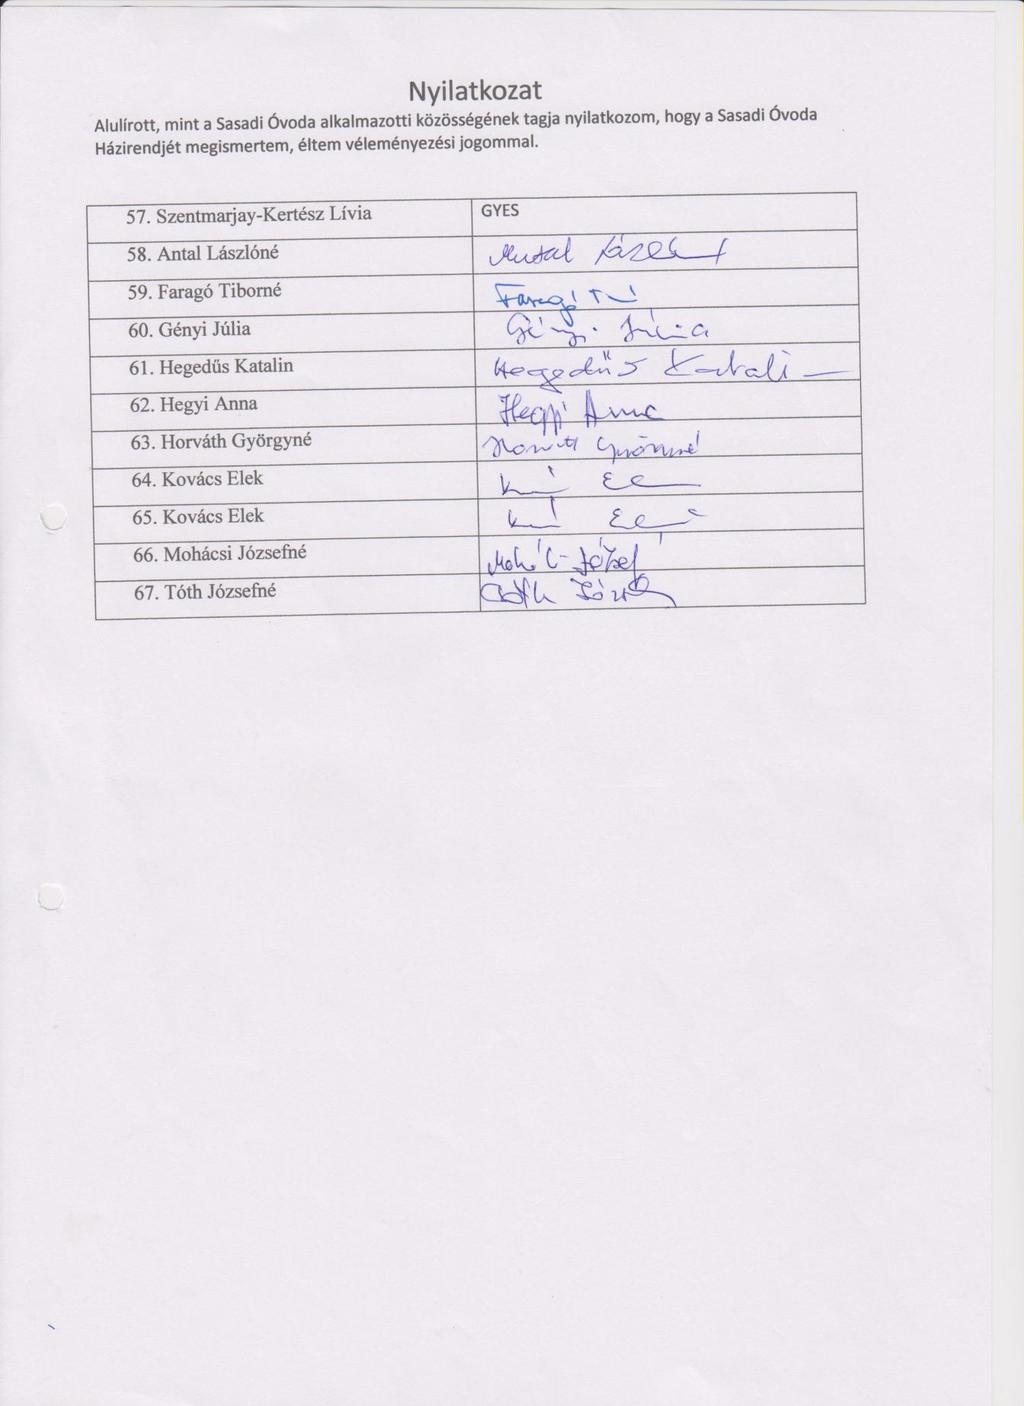 Nyilatkozat
Alulírott, mint a Sasadi Óvoda alkalmazotti közösségének tagja nyilatkozom, hogy a Sasadi Óvoda
Házirendjét megismertem, éltem véleményezési jogommal.
57. Szentmarjay-Kertész Lívia GYES
58. Antal Lászlóné Antal
59. Faragó Tiborné Faragó
60. Gényi Júlia Gényi Júlia
61. Hegedűs Katalin Hegedűs Katalin
62. Hegyi Anna Hegyi Anna
63. Horváth Györgyné
64. Kovács Elek
65. Kovács Elek
66. Mohácsi Józsefné
67. Tóth Józsefné Tóth